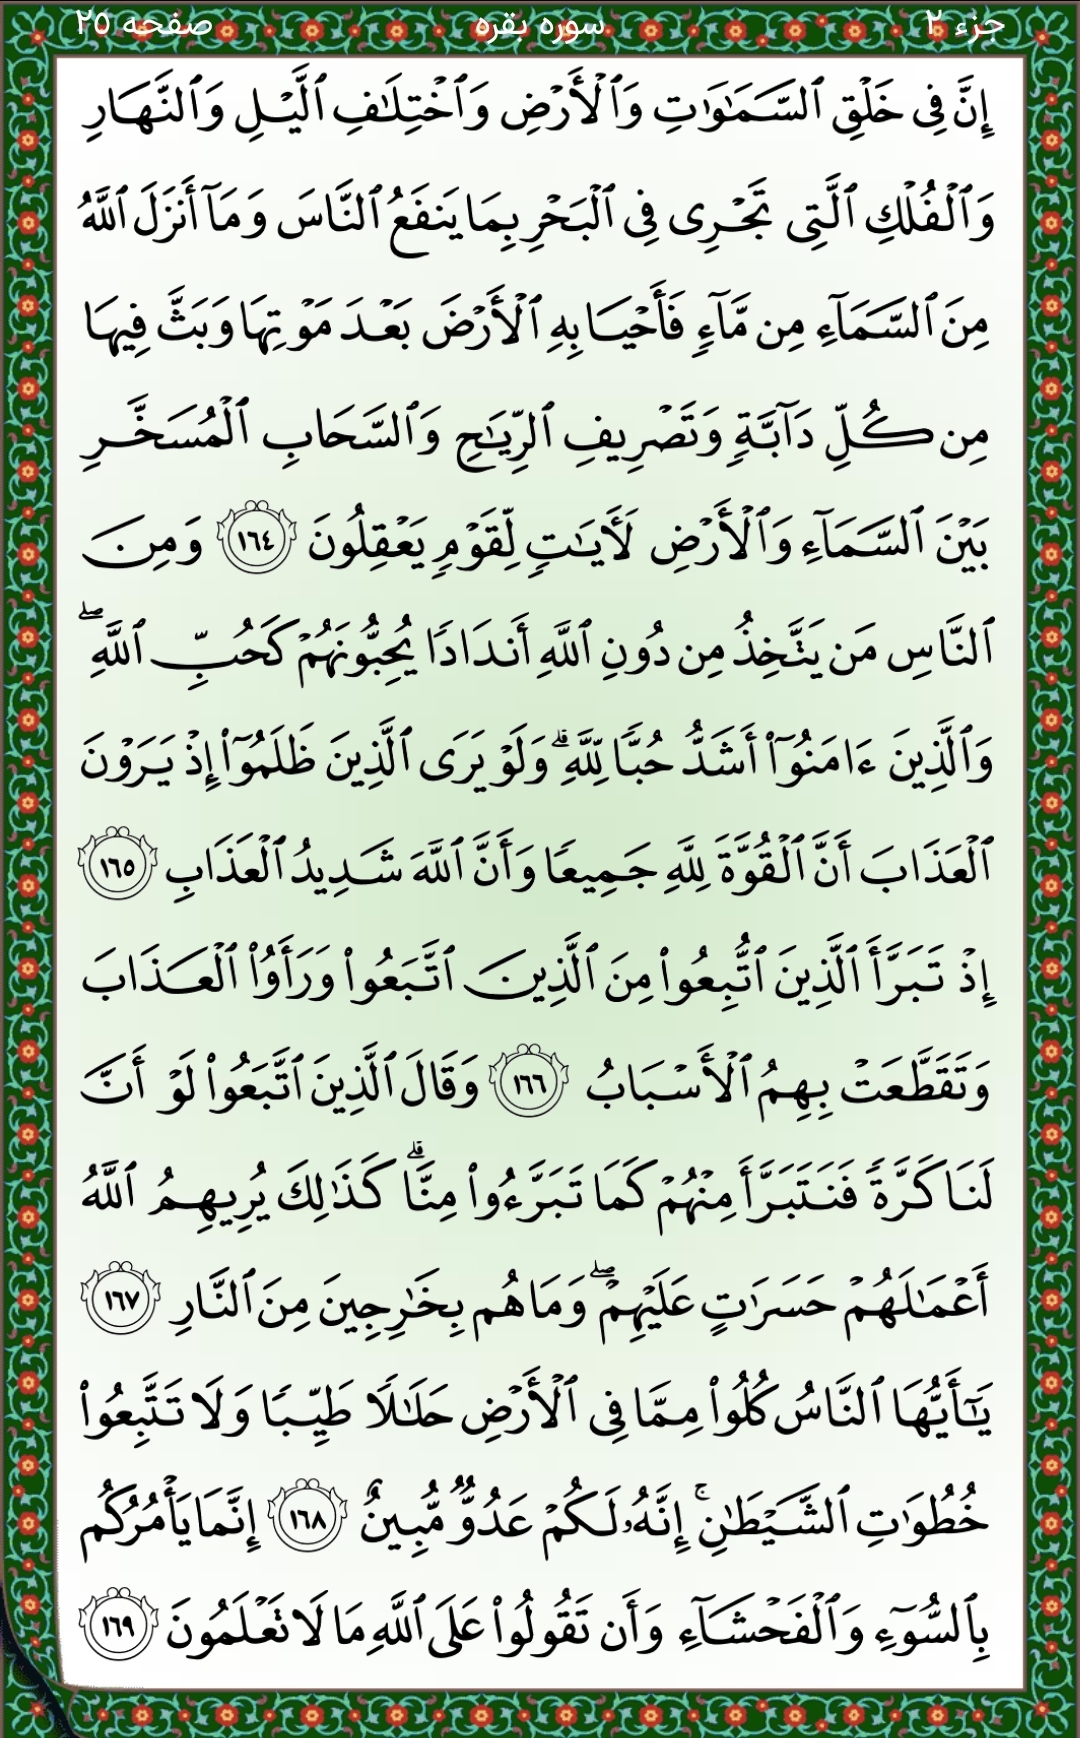 جزء ٢
سوره بقره
صفحه ٢٥
إِنَّ فِى خَلْقِ ٱلسَّمَـٰوَٰتِ وَٱلْأَرْضِ وَٱخْتِلَـٰفِ ٱلَّيْلِ وَٱلنَّهَارِ
وَٱلْفُلْكِ ٱلَّتِى تَجْرِى فِى ٱلْبَحْرِ بِمَا يَنفَعُ ٱلنَّاسَ وَمَآ أَنزَلَ ٱللَّهُ
مِنَ ٱلسَّمَآءِ مِن مَّآءٍ فَأَحْيَا بِهِ ٱلْأَرْضَ بَعْدَ مَوْتِهَا وَبَثَّ فِيهَا
مِن كُلِّ دَآبَّةٍ وَتَصْرِيفِ ٱلرِّيَـٰحِ وَٱلسَّحَابِ ٱلْمُسَخَّرِ
بَيْنَ ٱلسَّمَآءِ وَٱلْأَرْضِ لَـَٔايَـٰتٍ لِّقَوْمٍ يَعْقِلُونَ ١٦٤ وَمِنَ
ٱلنَّاسِ مَن يَتَّخِذُ مِن دُونِ ٱللَّهِ أَندَادًا يُحِبُّونَهُمْ كَحُبِّ ٱللَّهِ ۖ
وَٱلَّذِينَ ءَامَنُوٓا۟ أَشَدُّ حُبًّا لِّلَّهِ ۗ وَلَوْ يَرَى ٱلَّذِينَ ظَلَمُوٓا۟ إِذْ يَرَوْنَ
ٱلْعَذَابَ أَنَّ ٱلْقُوَّةَ لِلَّهِ جَمِيعًا وَأَنَّ ٱللَّهَ شَدِيدُ ٱلْعَذَابِ ١٦٥
إِذْ تَبَرَّأَ ٱلَّذِينَ ٱتُّبِعُوا۟ مِنَ ٱلَّذِينَ ٱتَّبَعُوا۟ وَرَأَوُا۟ ٱلْعَذَابَ
وَتَقَطَّعَتْ بِهِمُ ٱلْأَسْبَابُ ١٦٦ وَقَالَ ٱلَّذِينَ ٱتَّبَعُوا۟ لَوْ أَنَّ
لَنَا كَرَّةً فَنَتَبَرَّأَ مِنْهُمْ كَمَا تَبَرَّءُوا۟ مِنَّا ۗ كَذَٰلِكَ يُرِيهِمُ ٱللَّهُ
أَعْمَـٰلَهُمْ حَسَرَٰتٍ عَلَيْهِمْ ۖ وَمَا هُم بِخَـٰرِجِينَ مِنَ ٱلنَّارِ ١٦٧
يَـٰٓأَيُّهَا ٱلنَّاسُ كُلُوا۟ مِمَّا فِى ٱلْأَرْضِ حَلَـٰلًا طَيِّبًا وَلَا تَتَّبِعُوا۟
خُطُوَٰتِ ٱلشَّيْطَـٰنِ ۚ إِنَّهُۥ لَكُمْ عَدُوٌّ مُّبِينٌ ١٦٨ إِنَّمَا يَأْمُرُكُم
بِٱلسُّوٓءِ وَٱلْفَحْشَآءِ وَأَن تَقُولُوا۟ عَلَى ٱللَّهِ مَا لَا تَعْلَمُونَ ١٦٩